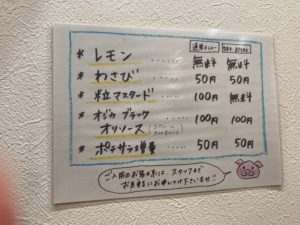 * レモン ・・・・・ 無料 無料
* わさび ・・・・・ 50円 50円
* 粒マスタード ・・・・ 100円 無料
* オジカ ブラック
オリソース 100円 100円
* ポテサラ増量 ・・・・ 50円 50円
ご入用のお客さまは、スタッフまで
お気軽にお申しつけ下さいませ!!